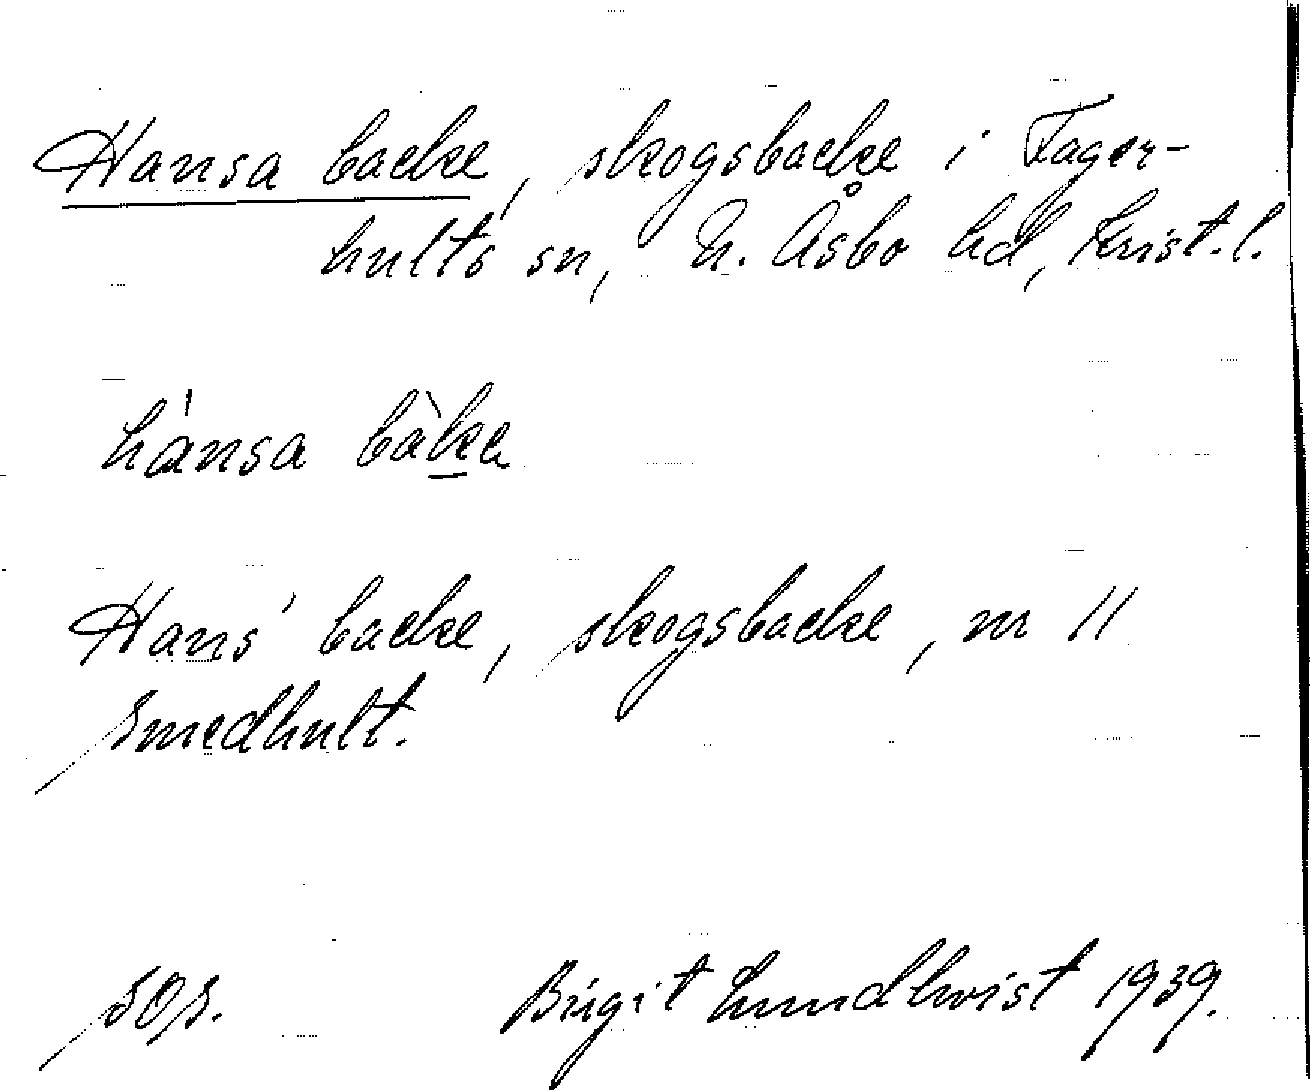 Hansa backe, skogsbacke i Fager-
hults sn, N. Åsbo hd, Krist. l.
hánsa bàka
Hans' backe, skogsbacke, nr 11
Smedhult.
Birgit Lundkvist 1939.